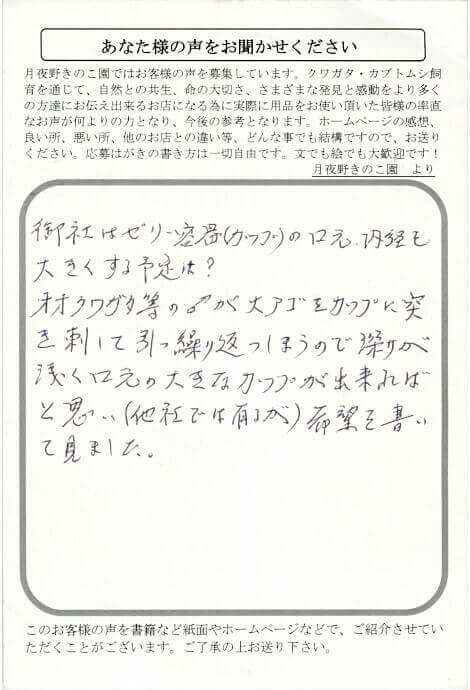 あなた様の声をお聞かせください
月夜野きのこ園ではお客様の声を募集しています。クワガタ・カブトムシ飼
育を通じて、自然との共生、命の大切さ、さまざまな発見と感動をより多く
の方達にお伝え出来るお店になる為に実際に用品をお使い頂いた皆様の率直
なお声が何よりの力となり、今後の参考となります。ホームページの感想、
良い所、悪い所、他のお店との違い等、どんな事でも結構ですので、お送り
ください。応募はがきの書き方は一切自由です。文でも絵でも大歓迎です！
月夜野きのこ園　より
御社はゼリー容器(カップ)の口元、内径も
大きくする予定は？
オオクワガタ等の♂が大アゴをカップに突
き刺して引っ繰り返っしまうので深りが
浅く口元の大きなカップが出来れば
と思い(他社では有るが)希望を書い
て見ました。
このお客様の声を書籍など紙面やホームページなどで、ご紹介させてい
ただくことがございます。ご了承の上お送り下さい。